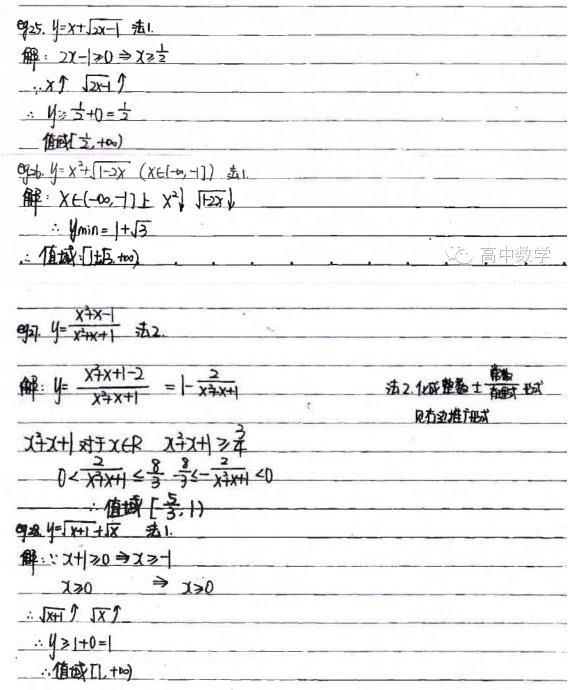 eg25. y=x+√2x-1 法1.
解: 2x-1≥0⇒x≥1/2
∵x↑ √2x-1↑
∴ y≥1/2+0=1/2
值域[1/2,+∞)
eg26. y=x²+√1-2x (x∈(-∞,-1]) 法1.
解: x∈(-∞,-1]上 x²↓ √1-2x↓
∴ ymin=1+√3
∴ 值域:[1+√3,+∞)
高中数学
eg27. y=(x²+x-1)/(x²+x+1) 法2.
解: y=(x²+x+1-2)/(x²+x+1) =1-2/(x²+x+1)
法2.化成整数±常数/ 形式
见右边推广形式
x²+x+1对于x∈R x²+x+1≥3/4
0<2/(x²+x+1)≤8/3 -8/3≤-2/(x²+x+1)<0
∴值域[-5/3,1)
eg28. y=√x+1+√x 法1.
解:∵x+1≥0⇒x≥-1
x≥0 ⇒ x≥0
∴√x+1↑ √x↑
∴y≥1+0=1
∴值域[1,+∞)